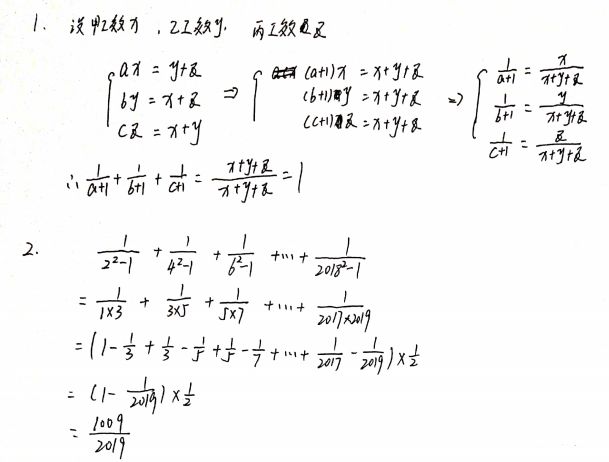 1. 设甲工效x，乙工效y，丙工效z
{ax = y+z ⇒ {(a+1)x = x+y+z ⇒ {1/(a+1) = x/(x+y+z)
by = x+z (b+1)y = x+y+z 1/(b+1) = y/(x+y+z)
cz = x+y (c+1)z = x+y+z 1/(c+1) = z/(x+y+z)
∴ 1/(a+1) + 1/(b+1) + 1/(c+1) = (x+y+z)/(x+y+z) = 1
2. 1/(2²-1) + 1/(4²-1) + 1/(6²-1) + ... + 1/(2018²-1)
= 1/(1×3) + 1/(3×5) + 1/(5×7) + ... + 1/(2017×2019)
= (1 - 1/3 + 1/3 - 1/5 + 1/5 - 1/7 + ... + 1/2017 - 1/2019) × 1/2
= (1 - 1/2019) × 1/2
= 1009/2019